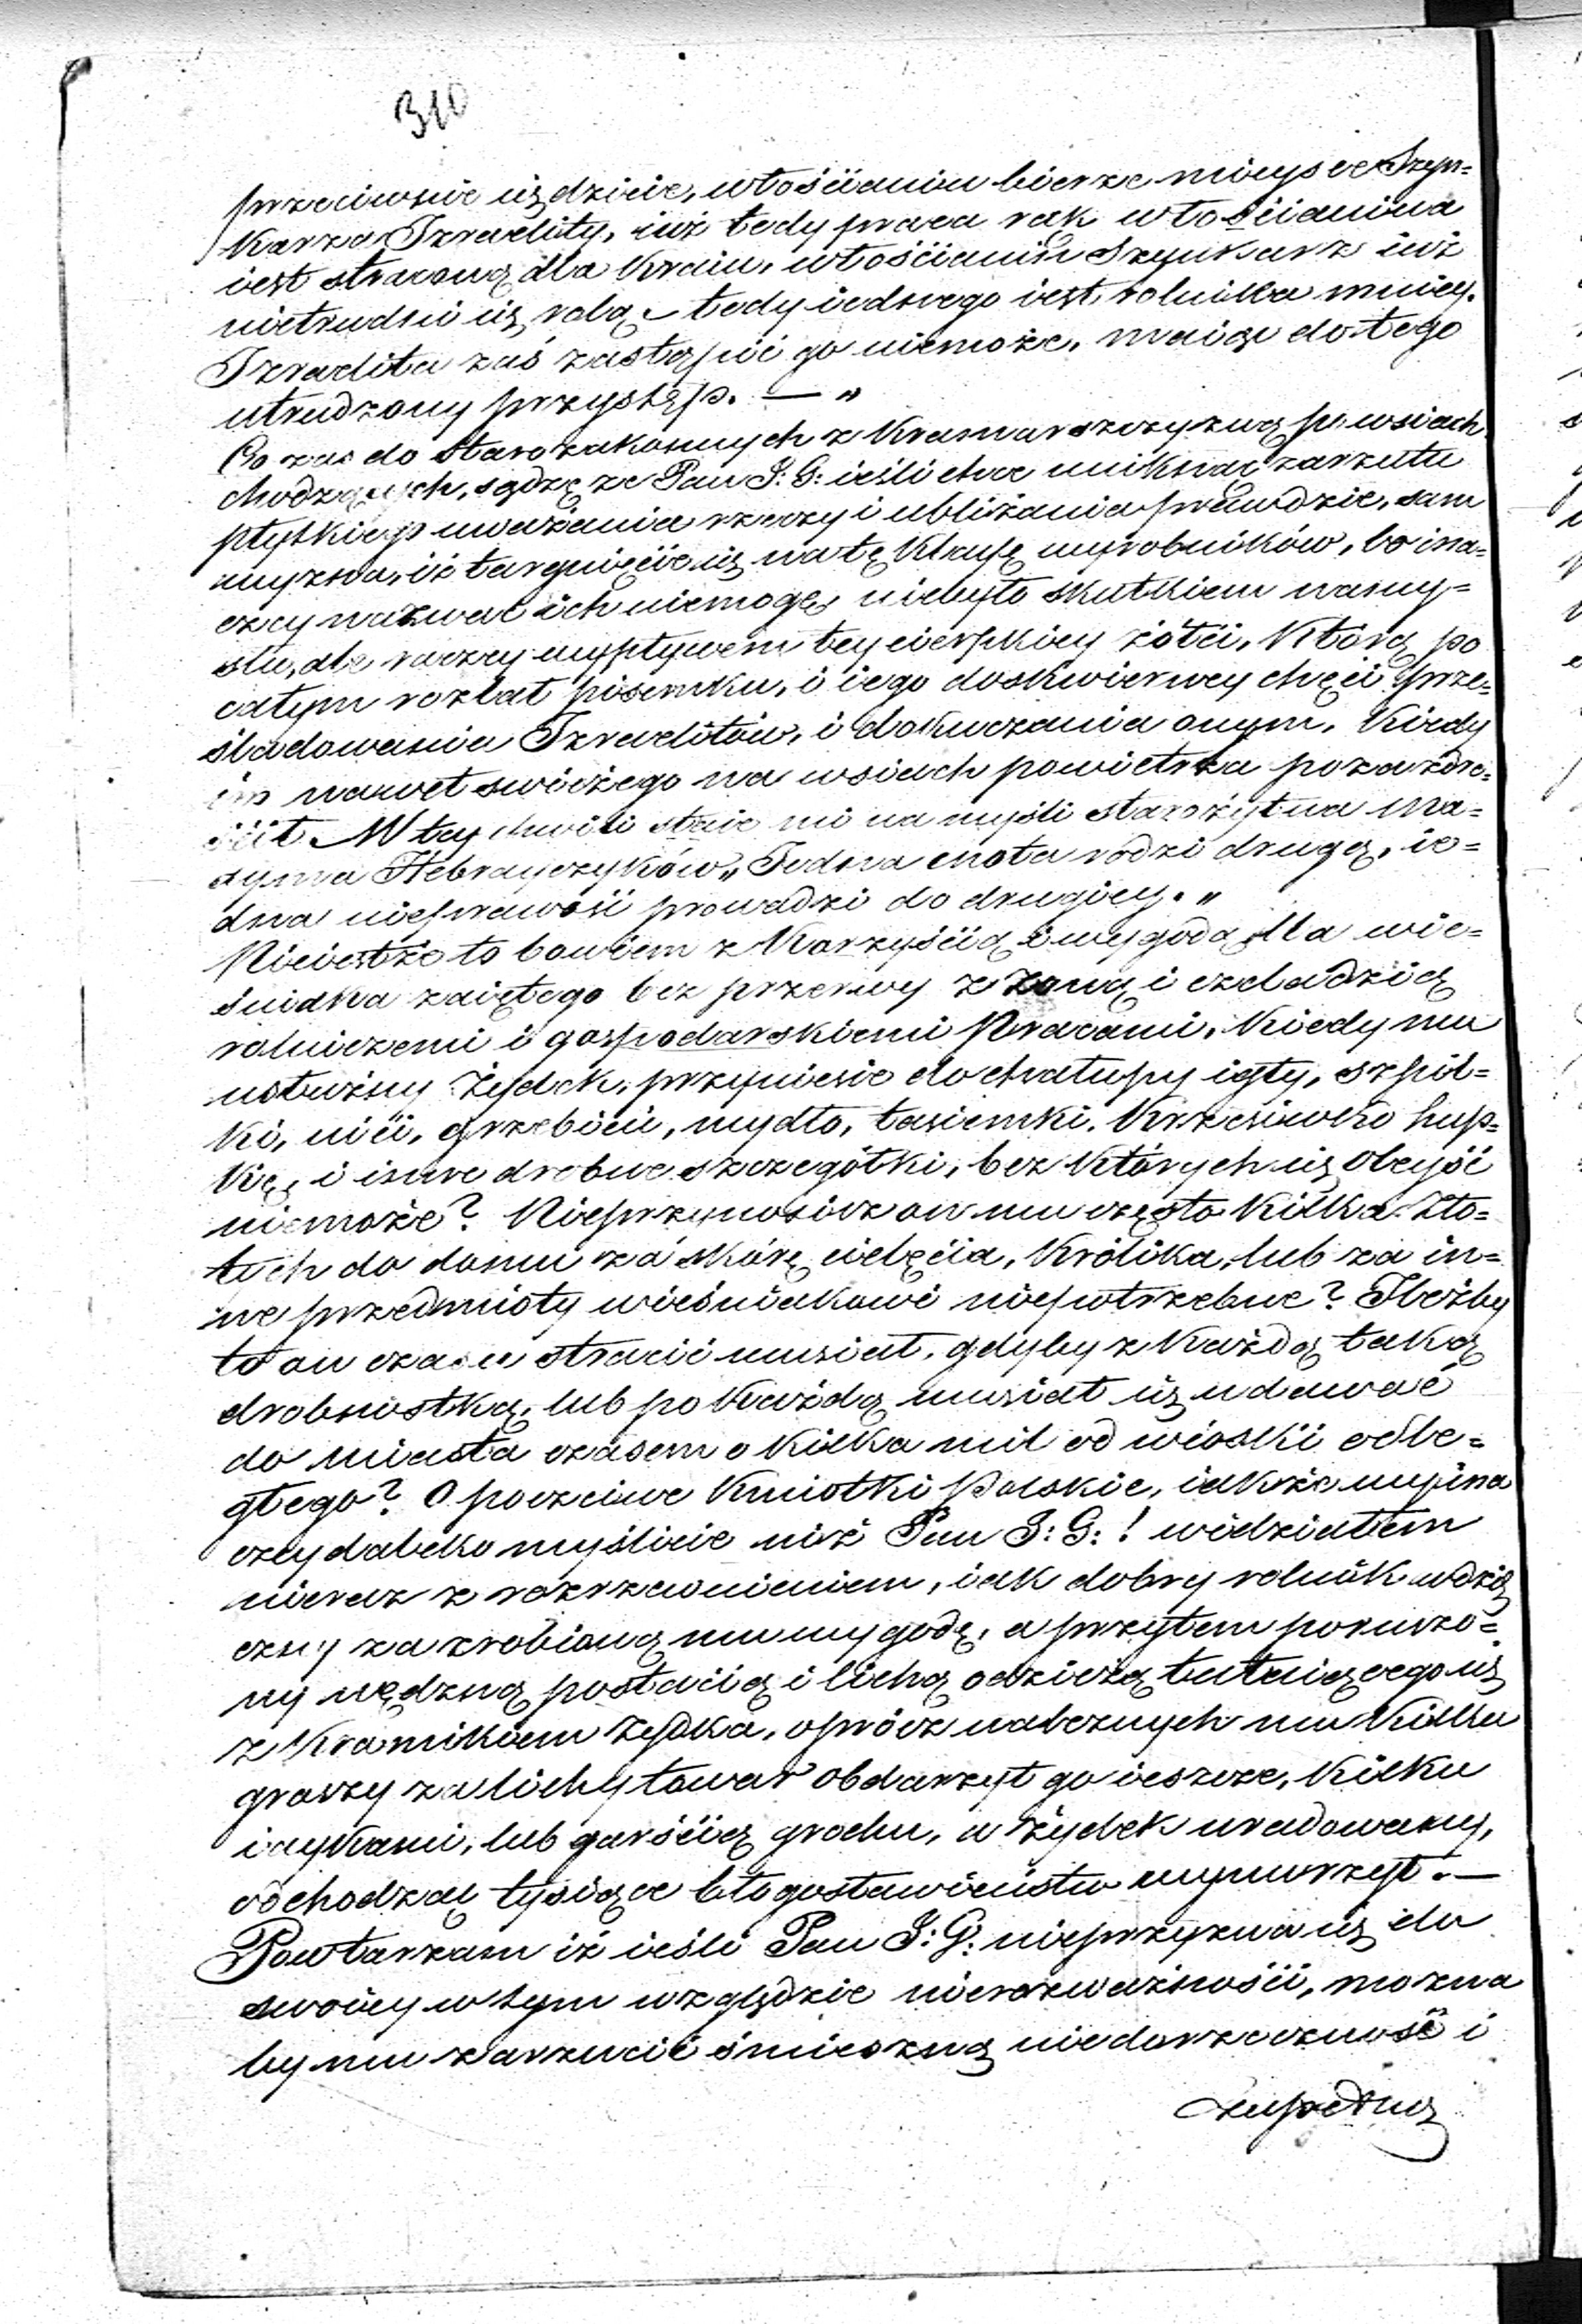 310
przeciwnie się dzieie, włościanin bierze mieysce Szyn=
karza Izraelity, iuż tedy praca rąk włościanina
iest straconą dla Kraiu, włościanin Szynkarz iuż
nietrudni się rolą, tedy iednego iest rolnika mniey.
Izraelita zaś zastąpić go niemoże, maiąc do tego
utrudzony przystęp. — "
Co zaś do Starozakonnych z Kramarszczyzną po wsiach
chodzących, sądzę że Pan J: G: ieśli chce uniknąć zarzutu
płytkiego uważania rzeczy i ubliżania prawdzie, sam
wyzna, iż targnięcie się na tę Klassę wyrobników, bo ina=
czey nazwać ich niemogę, niebyło skutkiem namy=
słu, ale raczey wypływem tey cierpkiey żółci, którą po
całym rozlał pisemku, i iego doskwierney chęci prze=
śladowania Izraelitów, i dokuczania onym. Kiedy
im nawet świeżego na wsiach powietrza pozazdro=
ścił. W tey chwili staie mi na myśli starożytna ma=
xyma Hebrayczyków „Jedna cnota rodzi drugą, ie=
dna nieprawość prowadzi do drugiey. "
Nieiestże to bowiem z Korzyścią i wygodą dla wie=
śniaka zaiętego bez przerwy z żoną i czeladzią
rolniczemi i gospodarskiemi Pracami, Kiedy mu
usłużny Żydek, przyniesie do chałupy igły, szpil=
ki, nici, grzebieni, mydło, tasiemki, Krzesiwko hup=
kę, i inne drobne szczegółki, bez których się obeyść
niemoże? Nieprzynosiż on mu często Kilka Zło=
tych do domu za skórę cielęcia, Królika, lub za in=
ne przedmioty wieśniakowi niepotrzebne? Ileżby
to on czasu stracić musiał, gdyby z Każdą taką
drobnostką, lub po Każdą musiał się udawać
do miasta czasem o Kilka mil od wioski odle=
głego? O poczciwe Kmiotki Polskie, iakże wy ina
czey daleko myślicie niż Pan J: G: ! widziałem
nieraz z rozrzewnieniem, iak dobry rolnik wdzię
czny za zrobioną mu wygodę, a przytem poruszo=
ny nędzną postacią i lichą odzieżą tułaiącego się
z Kramikiem Żydka, oprócz należnych mu Kilku
groszy za lichy towar obdarzył go ieszcze, Kilku
iaykami, lub garścią grochu, a Żydek uradowany,
odchodząc tysiące błogosławieństw wynurzył. —
Powtarzam iż ieśli Pan J: G: nieprzyzna się do
swoiey w tym względzie nierozważności, można
by mu zarzucić śmieszną niedorzeczność i
zupełną